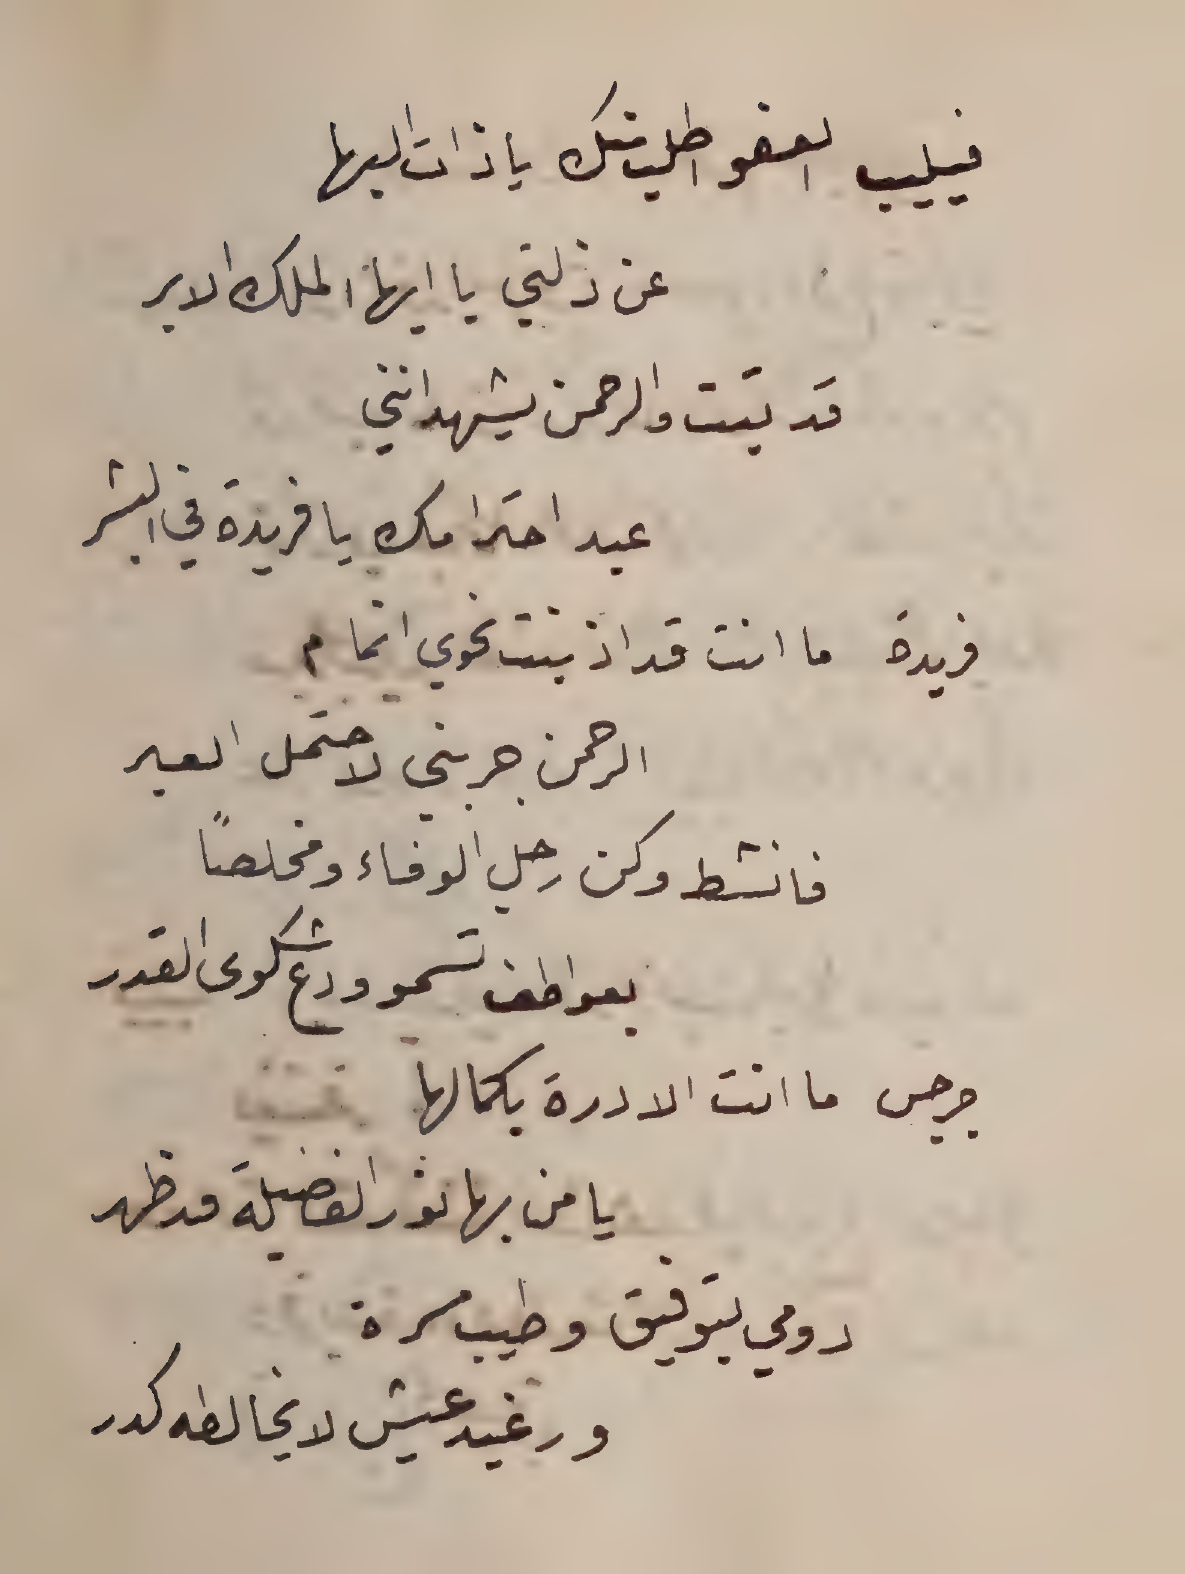 فيليب العفو اطلب منك يا ذات البها
عن ذلتي يا ايها الملك الابر
قد بتت والرحمن يشهد انني
عبد احترامك يا فريدة في البشر
فريدة ما انت قد اذنبت نحوي انما م
الرحمن جربني لاحتمل العبر
فانشط وكن رجل الوفاء ومخلصًا
بعواطف تسمو ودع شكوى القدر
جرجس ما انت الا درة بكمالها
يا من بها نور الفضيلة قد ظهر
دومي بتوفيق وطيب مسرة
ورغيد عيش لا يخالطه كدر